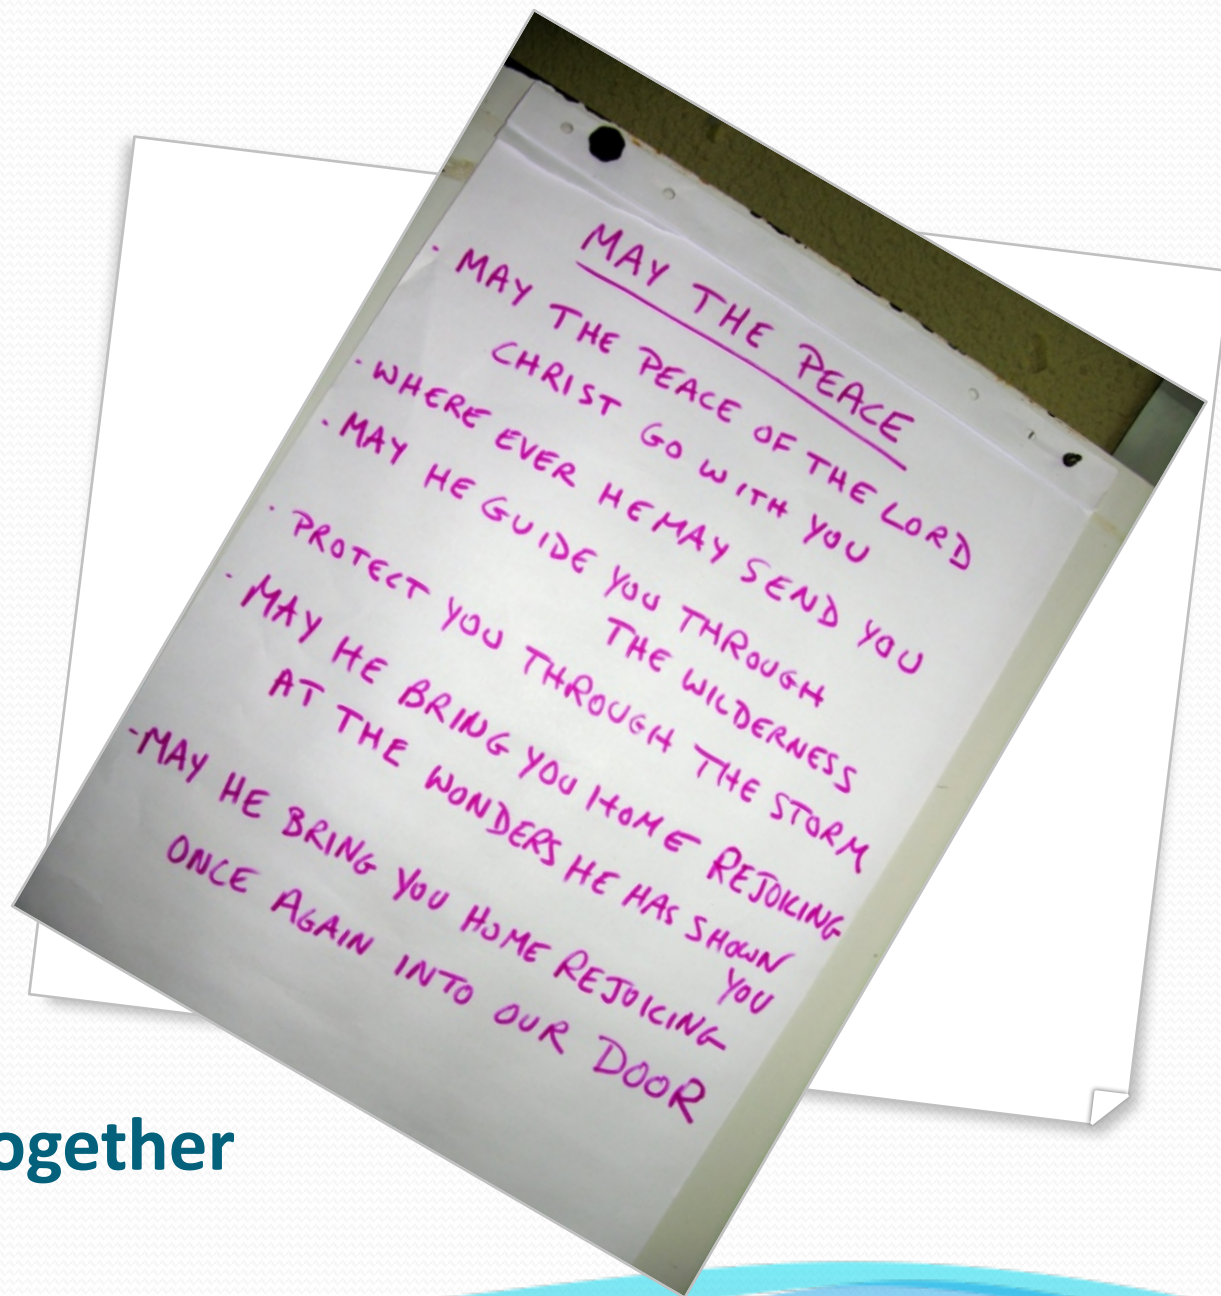 MAY THE PEACE
· MAY THE PEACE OF THE LORD
CHRIST GO WITH YOU
· WHERE EVER HE MAY SEND YOU
· MAY HE GUIDE YOU THROUGH
THE WILDERNESS
· PROTECT YOU THROUGH THE STORM
· MAY HE BRING YOU HOME REJOICING
AT THE WONDERS HE HAS SHOWN
YOU
- MAY HE BRING YOU HOME REJOICING
ONCE AGAIN INTO OUR DOOR
ogether